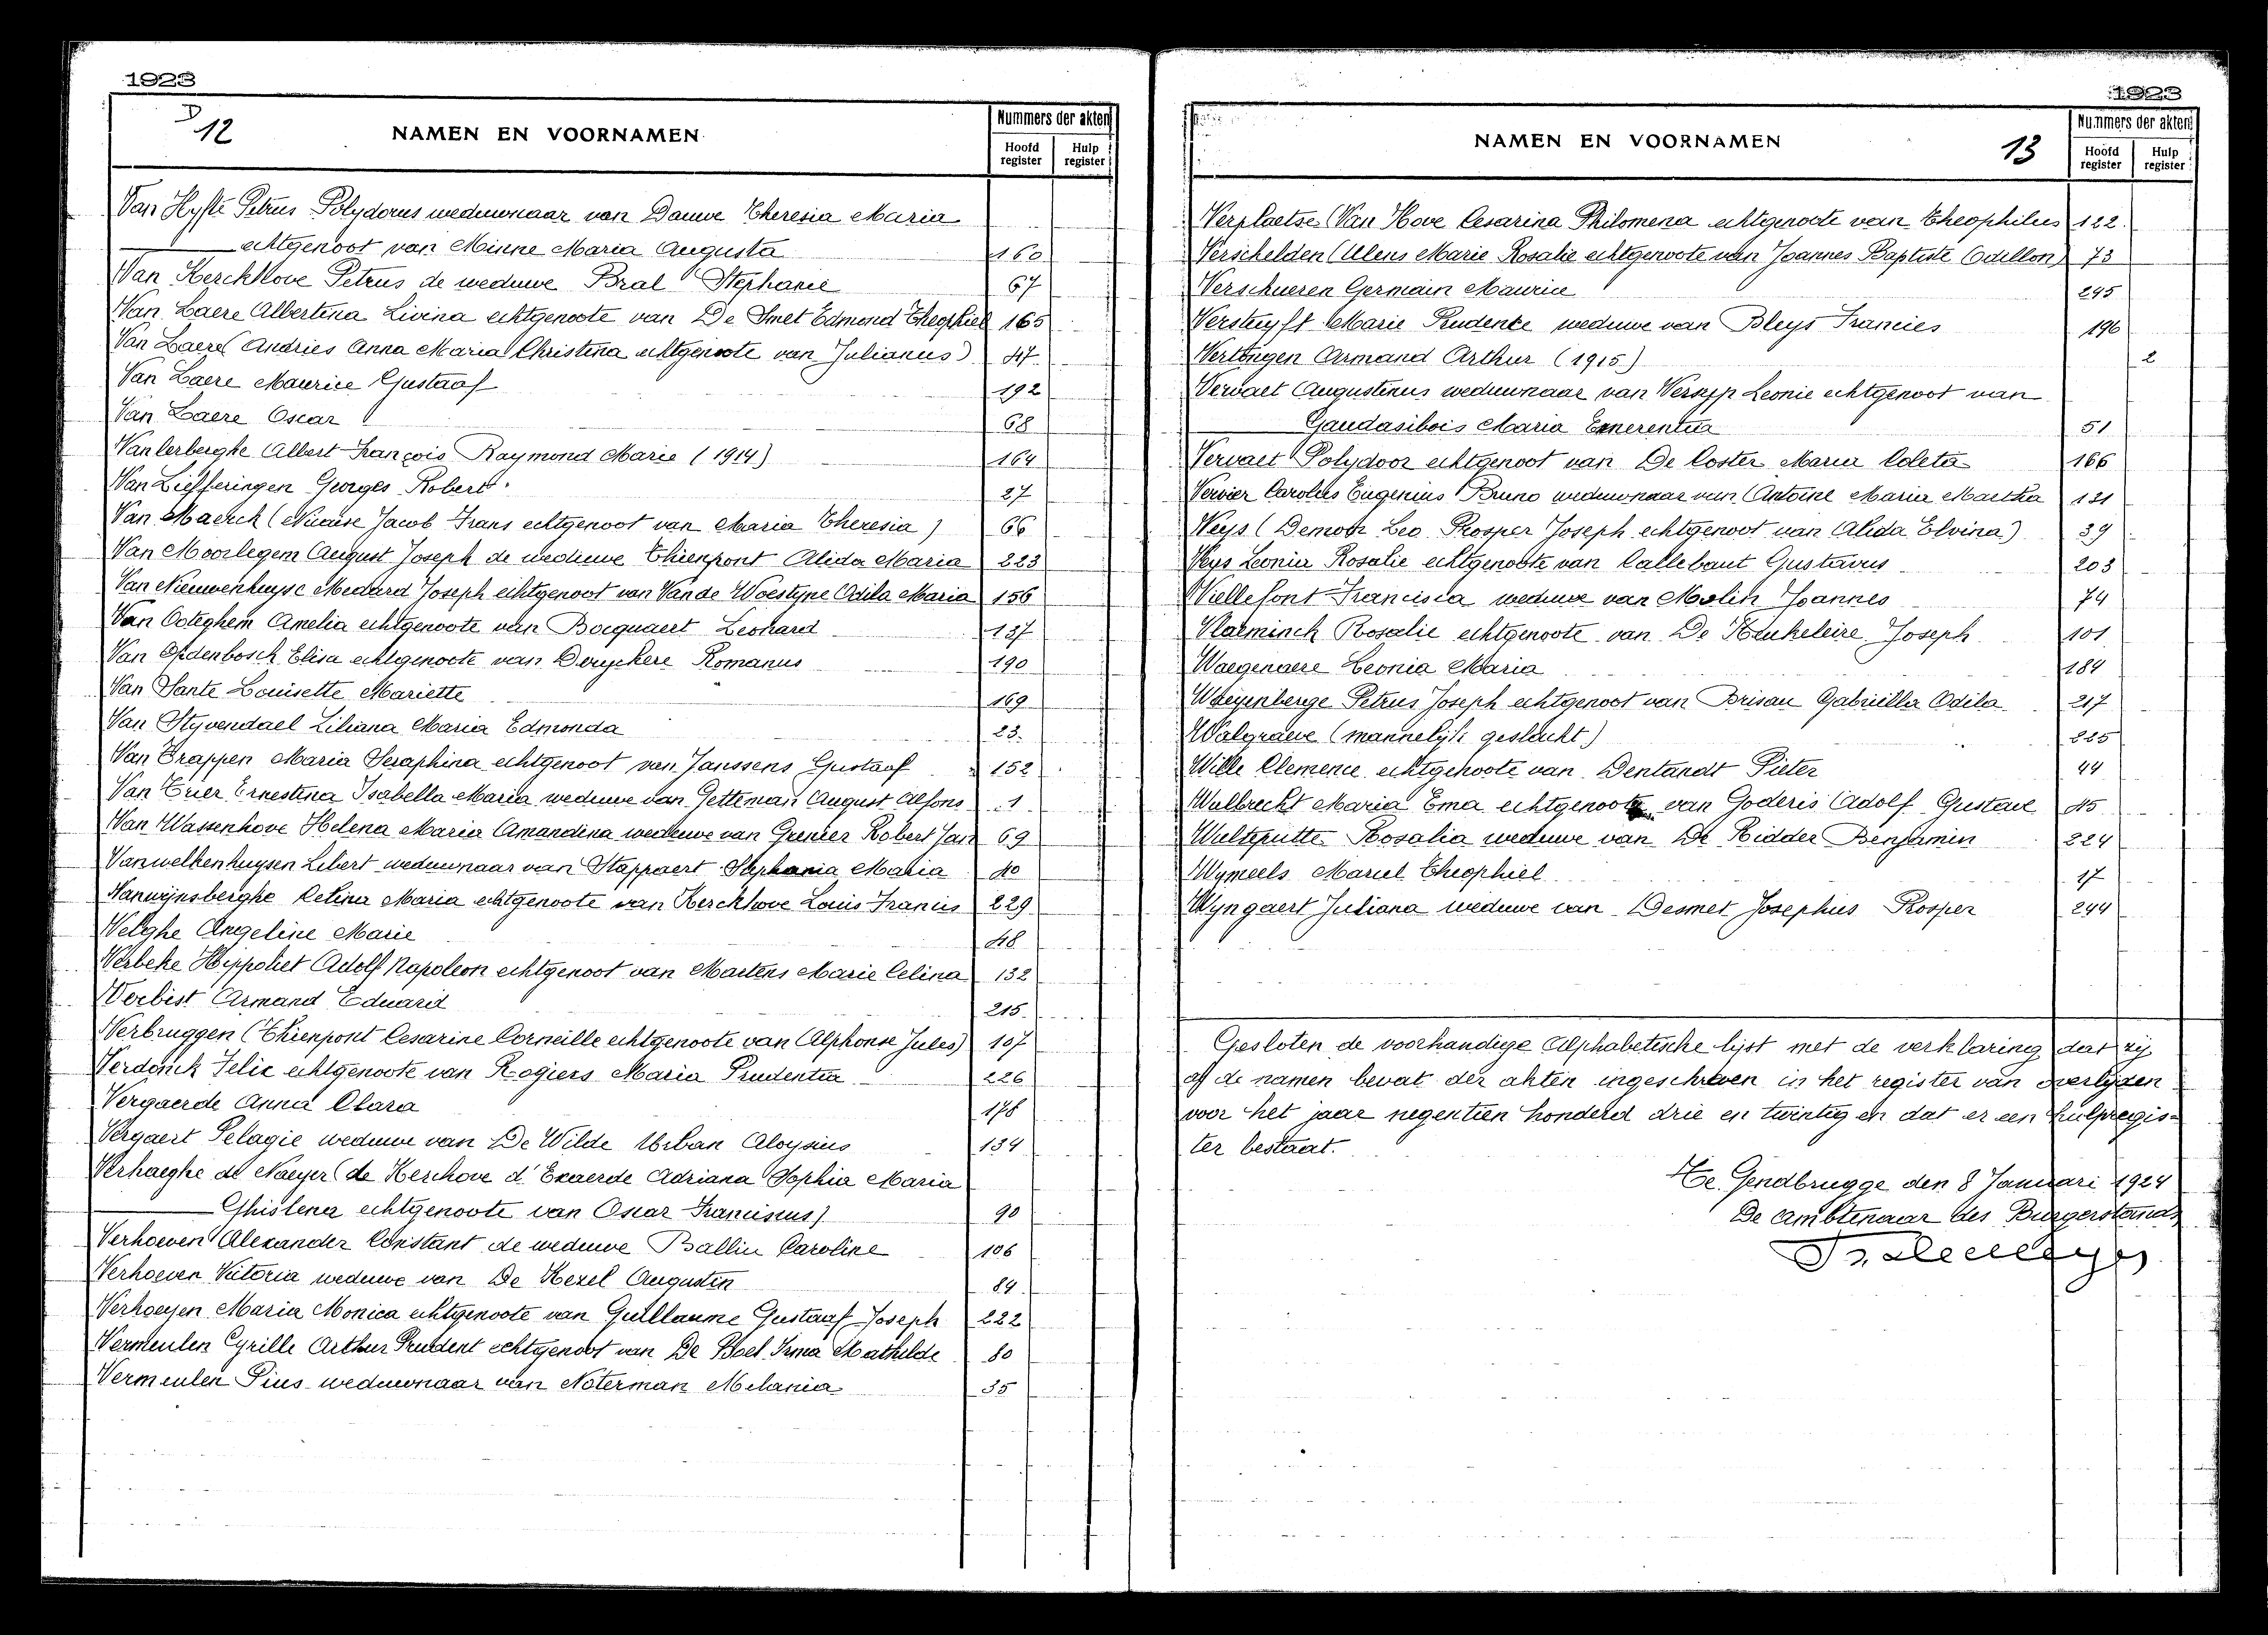 1923
12
NAMEN EN VOORNAMEN
Nummers der akten
Hoofd register
Hulp register
Van Hyfte Petrus Polydorus weduwnaar van Dauwe Theresia Maria
echtgenoot van Minne Maria Augusta 160
Van Kerckhove Petrus de weduwe Bral Stephanie 67
Van Laere Albertina Livina echtgenoote van De Smet Edmond Theophiel 165
Van Laere (Andries Anna Maria Christina echtgenoote van Julianus) 47
Van Laere Maurice Gustaaf 192
Van Laere Oscar 68
Vanlerberghe Albert François Raymond Marie (1914) 164
Van Liefferingen Georges Robert 27
Van Maerck (Nicaise Jacob Frans echtgenoot van Maria Theresia) 66
Van Moorlegem August Joseph de weduwe Thienpont Alida Maria 223
Van Nieuwenhuyse Medard Joseph echtgenoot van Van de Woestyne Odila Maria 156
Van Ooteghem Amelia echtgenoote van Bocquaert Leonard 137
Van Opdenbosch Elisa echtgenoote van Deryckere Romanus 190
Van Sante Louisette Mariette 169
Van Styvendael Liliana Maria Edmonda 23
Van Trappen Maria Seraphina echtgenoot van Janssens Gustaaf 152
Van Trier Ernestina Isabella Maria weduwe van Getteman August Alfons 1
Van Wassenhove Helena Maria Amandina weduwe van Grenier Robert Jan 69
Vanwelkenhuysen Libert weduwnaar van Stappaert Stephania Maria 40
Vanwijnsberghe Celina Maria echtgenoote van Kerckhove Louis Francis 229
Velghe Angeline Marie 48
Verbeke Hippoliet Adolf Napoleon echtgenoot van Martens Marie Celina 132
Verbist Armand Eduard 215
Verbruggen (Thienpont Cesarine Corneille echtgenoote van Alphonse Jules) 107
Verdonck Felix echtgenoote van Rogiers Maria Prudentia 226
Vergaerde Anna Clara 178
Vergaert Pelagie weduwe van De Wilde Urban Aloysius 134
Verhaeghe de Naeyer (de Kerchove d'Exaerde Adriana Sophia Maria
Ghislena echtgenoote van Oscar Franciscus) 90
Verhoeven Alexander Constant de weduwe Ballin Caroline 106
Verhoeven Victoria weduwe van De Kezel Augustin 84
Verhoeyen Maria Monica echtgenoote van Guillaume Gustaaf Joseph 222
Vermeulen Cyrille Arthur Prudent echtgenoot van De Boel Irma Mathilde 80
Vermeulen Pius weduwnaar van Noterman Melania 35
1923
NAMEN EN VOORNAMEN
13
Nummers der akten
Hoofd register
Hulp register
Verplaetse (Van Hove Cesarina Philomena echtgenoote van Theophilus 122
Verschelden (Ulens Marie Rosalie echtgenoote van Joannes Baptiste Odillon) 73
Verschueren Germain Maurice 245
Versluyft Marie Prudence weduwe van Bleys Francies 196
Vertongen Armand Arthur (1915) 2
Vervaet Augustinus weduwnaar van Versyp Leonie echtgenoot van
Gaudasibois Maria Emerentia 51
Vervaet Polydoor echtgenoot van De Coster Maria Coleta 166
Vervier Carolus Eugenius Bruno weduwnaar van Antoine Maria Martha 121
Veys (Demoor Leo Prosper Joseph echtgenoot van Alida Elvina) 39
Veys Leonia Rosalie echtgenoote van Callebaut Gustavus 203
Viellefont Francisca weduwe van Joannes 74
Vlaeminck Rosalie echtgenoote van De Keukeleire Joseph 101
Waegenaere Leonia Maria 184
Waeyenberge Petrus Joseph echtgenoot van Brisau Gabriella Odila 217
Walgraeve (mannelijk geslacht) 225
Wille Clemence echtgenoote van Dentandt Pieter 44
Wulbrecht Maria Ema echtgenoote van Goderis Adolf Gustave 45
Wultsputte Rosalia weduwe van De Ridder Benjamin 224
Wymeels Marcel Theophiel 17
Wyngaert Juliana weduwe van Desmet Josephus Prosper 244
Gesloten de voorhandige Alphabetische lijst met de verklaring dat zij
al de namen bevat der akten ingeschreven in het register van overlijden
voor het jaar negentien honderd drie en twintig en dat er een hulpregis-
ter bestaat.
Te Gendbrugge den 8 Januari 1924
De ambtenaar des Burgerstands